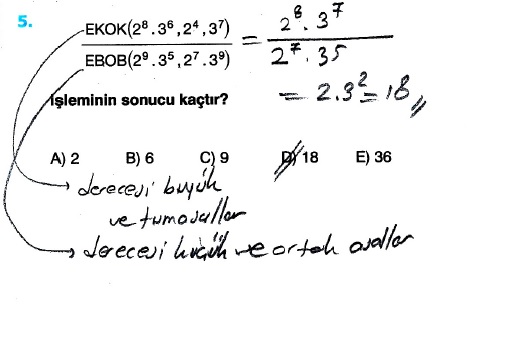 5.
EKOK(2⁸.3⁶,2⁴,3⁷) = 2⁸.3⁷
EBOB(2⁹.3⁵,2⁷.3⁹) 2⁷.35
= 2.3² = 18,,
İşleminin sonucu kaçtır?
A) 2 B) 6 C) 9 D) 18 E) 36
derecesi büyük
ve tüm asallar
derecesi küçük ve ortak asallar